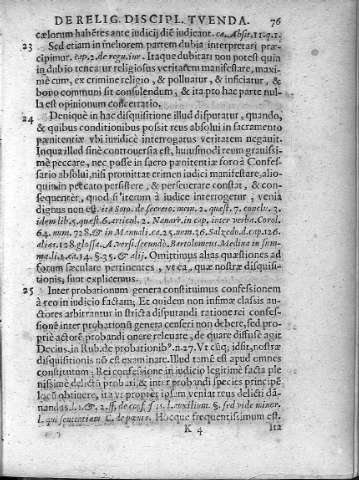 DE RELIG. DISCIPL. TVENDA. 76
cælorum habẽtes ante iudicij diẽ iudicant. ca. Absit. 11. q. 1.
23 Sed etiam in meliorem partem dubia interpretari præ-
cipimur. cap. 2. de reg. iur. Itaque dubitari non potest quin
in dubio teneatur religiosus veritatem manifestare, maxi-
mè cum, ex crimine religio, & polluatur, & inficiatur, &
bono communi sit consulendum, & ita pro hac parte nul-
la est opinionum
24 Denique in hac disquisitione illud disputatur, quando,
& quibus conditionibus possit reus absolui in sacramento
pænitentiæ vbi iuridicè interrogatus veritatem negauit.
Inqua illud sinè controuersia est, huiusmodi reum grauissi-
mè peccare, nec posse in sacro pænitentiæ foro à Confes-
sario absolui, nisi promittat crimen iudici manifestare, alio-
quin in peccato persistere, & perseuerare constat, & con-
sequenter, quod si iterum à iudice interrogetur, venia
dignus non est. ita Soto. de secreto. mem. 2. quæst. 7. conclu. 3.
idem lib. 5. quæst. 6. articul. 2. Nauarr. in cap. inter verba. Corol.
64. num. 728. & in Manuali. ca. 25. num. 36. Salzedo. d. cap. 126.
alias. 128. glossa. A. vers. secundò. Bartolomeus Medina in sum-
ma. li. 1. ca. 14. §. 35. & alij. Omittimus alias quæstiones ad
forum sæculare pertinentes, vt ea, quæ nostræ disquisi-
tionis, sunt explicemus.
25 Inter probationum genera constituimus confessionem
à reo in iudicio factam; Et quidem non infimæ classis au-
ctores arbitrantur in stricta disputandi ratione rei confes-
sionẽ inter probationũ genera censeri non debere, sed pro-
priè actorẽ probandi onere releuare, de quare diffusè agit
Decius, in Rub. de probationibꝰ. n. 27. Vt cũq; id sit, nostræ
disquisitionis nõ est examinare. Illud tamẽ est apud omnes
constitutum; Rei confessione in iudicio legitimè facta ple
nissimè delictũ probari, & inter probandi species principẽ
locũ obtinere, ita vt propter ipsam veniat reus delicti dã-
nandas. l. 1. & 2. ff. de conf. 
l. qui sententiam C. de pænis. Hocque frequentissimum est.
K 4 ita